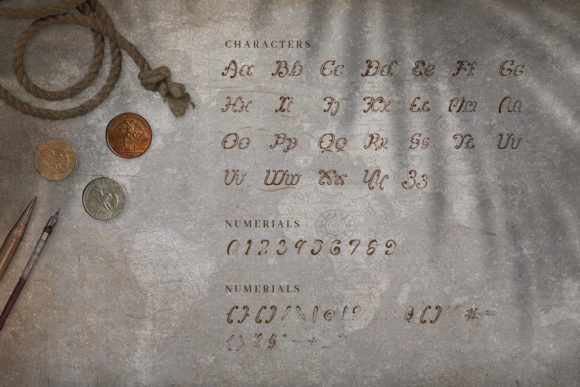 CHARACTERS
Aa Bb Cc Dd Ee Ff Gg
Hh Ii Jj Kk Ll Mm Nn
Oo Pp Qq Rr Ss Tt Uu
Vv Ww Xx Yy Zz
NUMERIALS
0 1 2 3 4 5 6 7 8 9
NUMERIALS